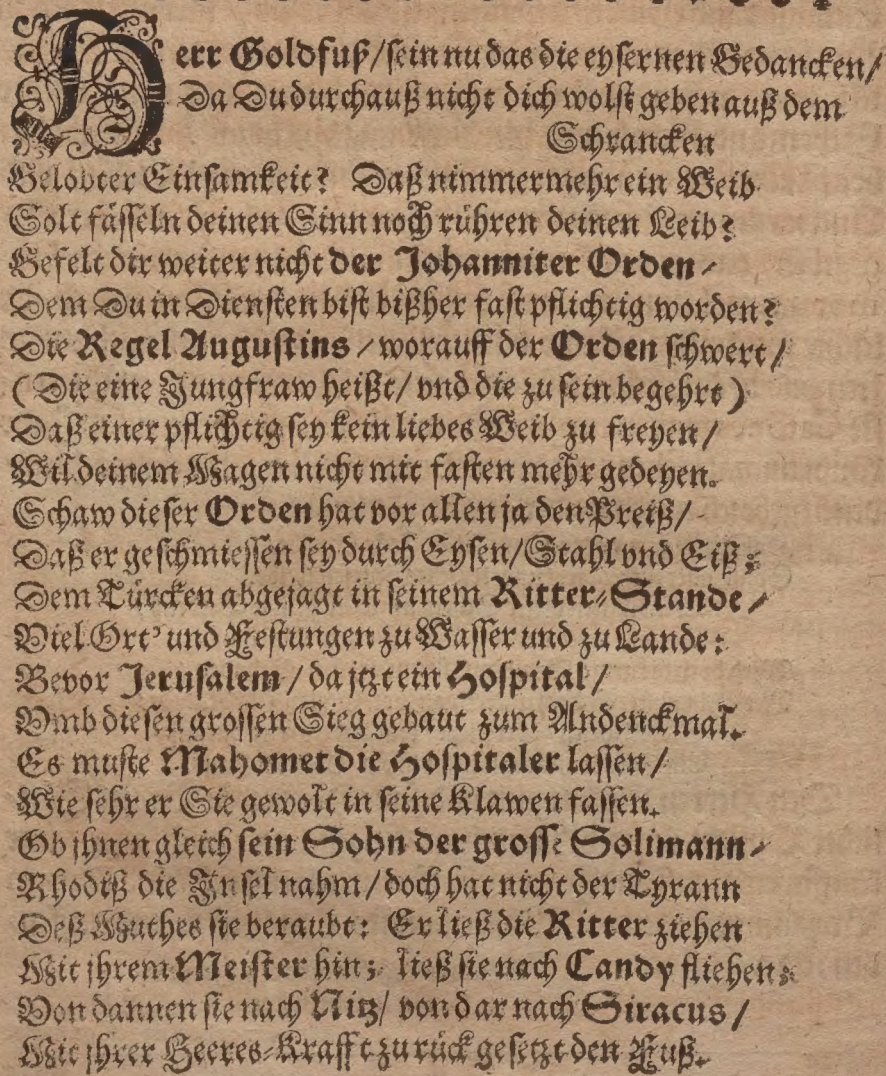 Herr Goldfuß/sein nu das die eysernen Gedancken/
Da Du durchauß nicht dich wolst geben auß dem
Schrancken
Gelobter Einsamkeit? Daß nimmermehr ein Weib
Solt fässeln deinen Sinn noch rühren deinen Leib?
Gefelt dir weiter nicht der Johanniter Orden/
Dem Du in Diensten bist bißher fast pflichtig worden?
Die Regel Augustins/worauff der Orden schwert/
(Die eine Jungfraw heißt/vnd die zu sein begehrt)
Daß einer pflichtig sey kein liebes Weib zu freyen/
Wil deinem Magen nicht mit fasten mehr gedeyen.
Schaw dieser Orden hat vor allen ja den Preiß/
Daß er geschmiessen sey durch Eysen/Stahl vnd Eiß;
Dem Türcken abgejagt in seinem Ritter-Stande/
Viel Ort' und Festungen zu Wasser und zu Lande:
Bevor Jerusalem/da jtzt ein Hospital/
Vmb diesen grossen Sieg gebaut zum Andenckmal.
Es muste Mahomet die Hospitaler lassen/
Wie sehr er Sie gewolt in seine Klawen fassen.
Ob jhnen gleich sein Sohn der grosse Solimann/
Rhodiß die Insel nahm/doch hat nicht der Tyrann
Deß Muthes sie beraubt: Er ließ die Ritter ziehen
Mit jhrem Meister hin; ließ sie nach Candy fliehen;
Von dannen sie nach Nitz/von dar nach Siracus/
Mit jhrer Heeres-Krafft zu rück gesetzt den Fuß.